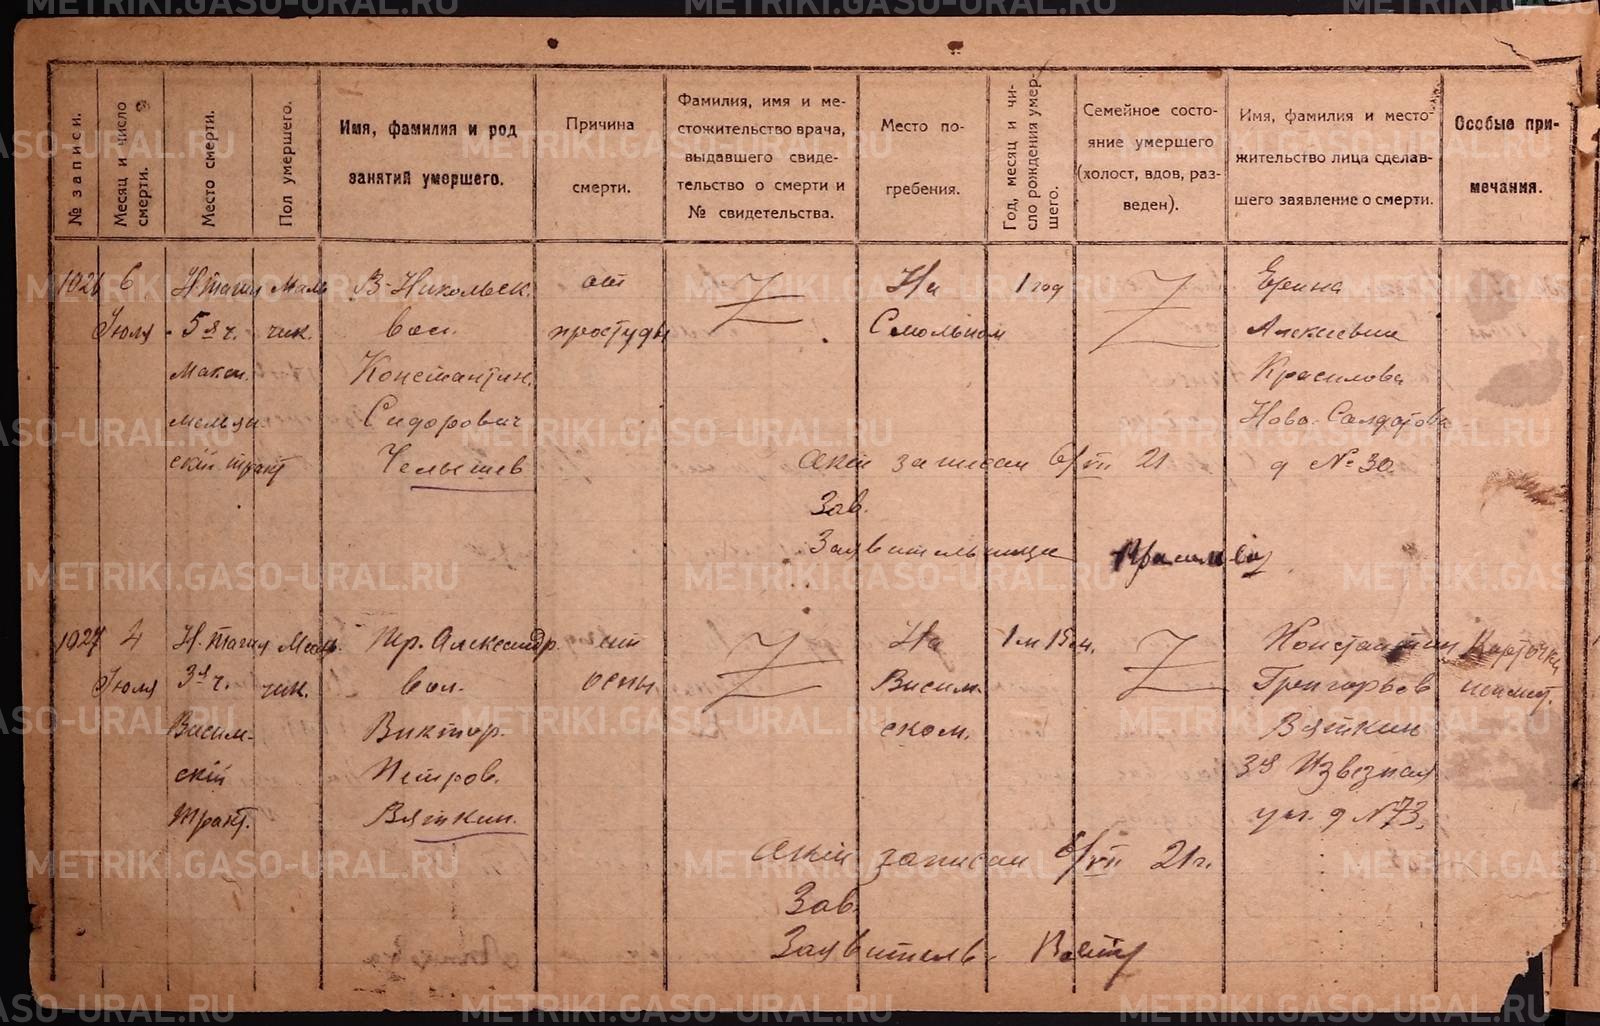 № записи.
Месяц и число
смерти.
Место смерти.
Пол умершего.
Имя, фамилия и род
занятий умершего.
Причина
смерти.
Фамилия, имя и ме-
стожительство врача,
выдавшего свиде-
тельство о смерти и
№ свидетельства.
Место по-
гребения.
Год, месяц и чи-
сло рождения умер-
шего.
Семейное состо-
яние умершего
(холост, вдов, раз-
веден).
Имя, фамилия и место-
жительство лица сделав-
шего заявление о смерти.
Особые при-
мечания.
1026
6
Июля
Н. Тагил
5я ч.
Макси.
мельян.
скій тракт
Маль
чик.
В-Никольск.
вол.
Константин.
Сидорович
Челышев
от
простуды
На
Смольном
1 год
Алексеевна
Красилова
Ново. Салдатова
д № 30.
Акт записан 6/VII 21
Зав.
Заявительница
1027
4
Июля
Н. Тагил
3я ч.
Висим-
скій
тракт.
Маль.
чик.
Тр. Александр.
вол.
Виктор.
Петров.
Вяткин.
от
оспы
На
Висим-
ском.
Константин
Григорьев
Вяткин
3я Извезная
ул. д № 73.
Карточки
Акт записан 6/VII 21 г.
Зав.
Заявитель.
METRIKI.GASO-URAL.RU